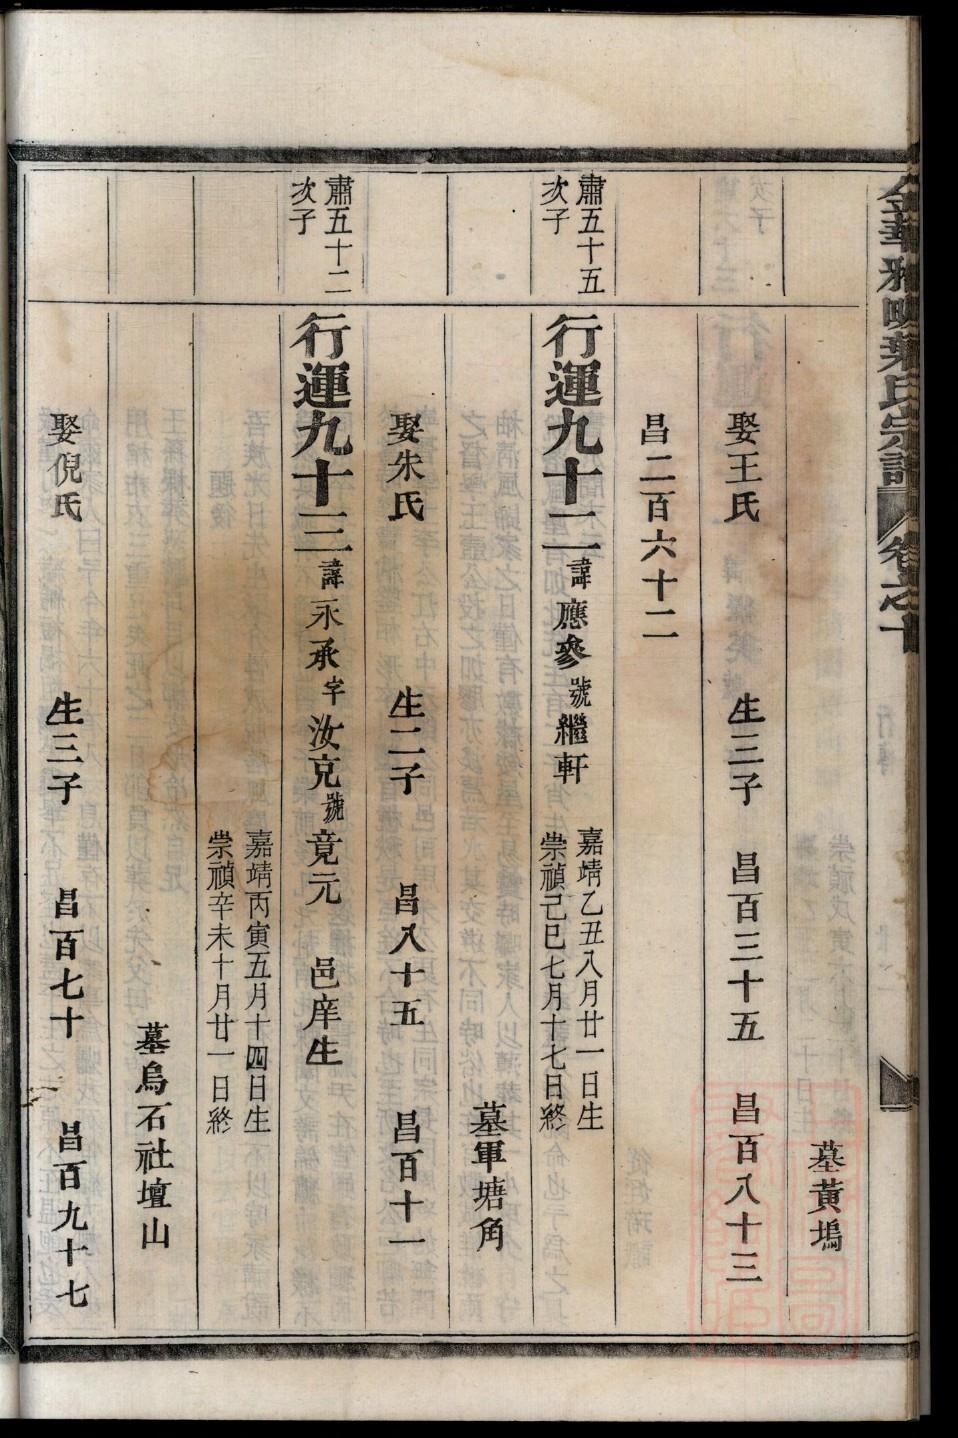 金華雅畈葉氏宗譜 卷之十
墓黃塢
娶王氏 生三子 昌百三十五 昌百八十三
昌二百六十二
肅五十五
次子
行運九十二 諱應參 號繼軒
嘉靖乙丑八月廿一日生
崇禎己巳七月十七日終
墓軍塘角
娶朱氏 生二子 昌八十五 昌百十一
肅五十二
次子
行運九十三 諱永承 字汝克 號竟元 邑庠生
嘉靖丙寅五月十四日生
崇禎辛未十月廿一日終
墓烏石社壇山
娶倪氏 生三子 昌百七十 昌百九十七